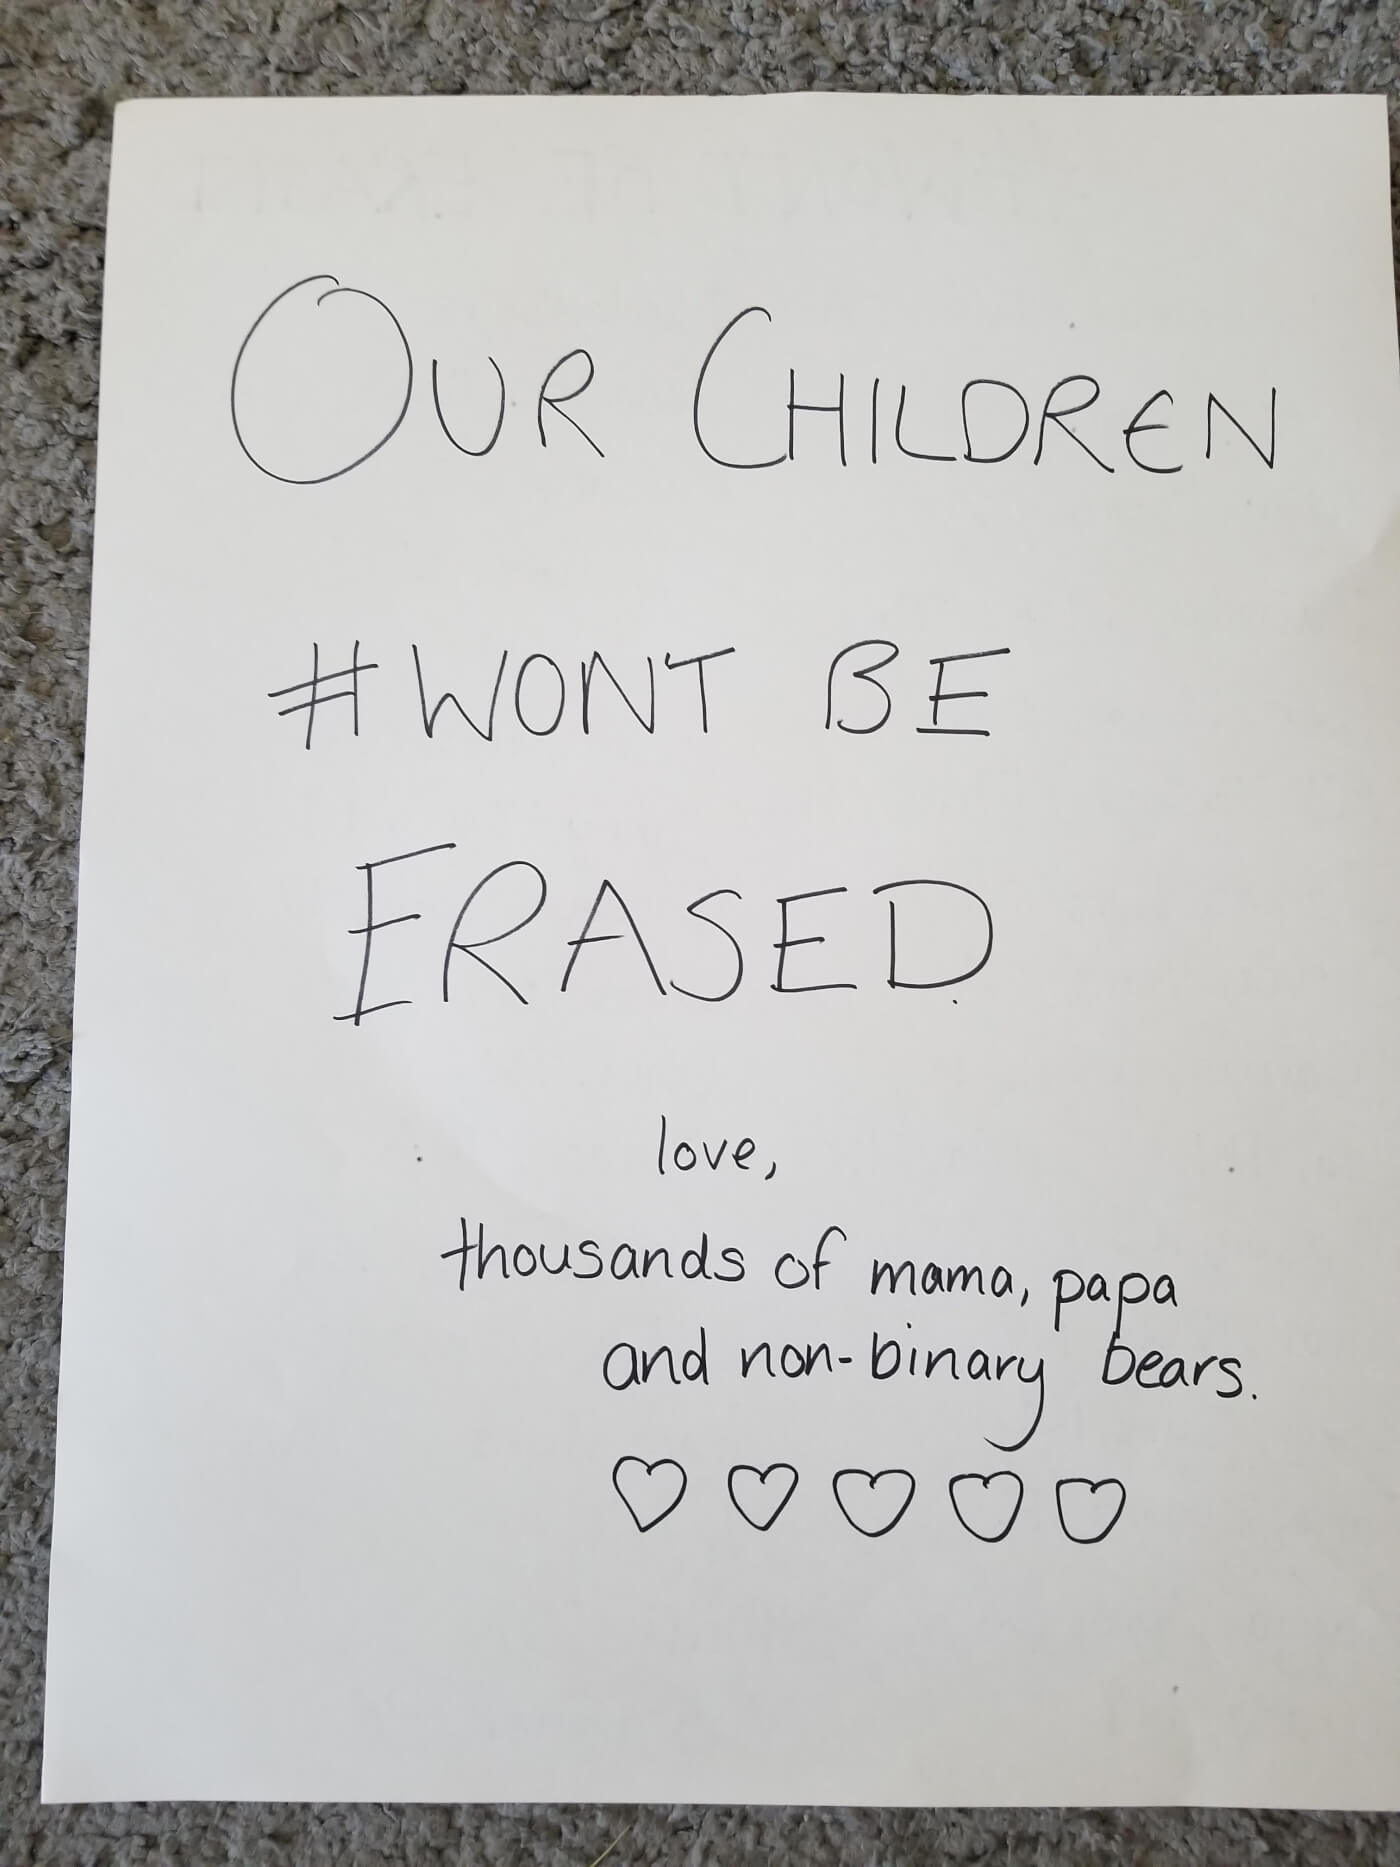 OUR CHILDREN
#WONT BE
ERASED.
love,
thousands of mama, papa
and non-binary bears.